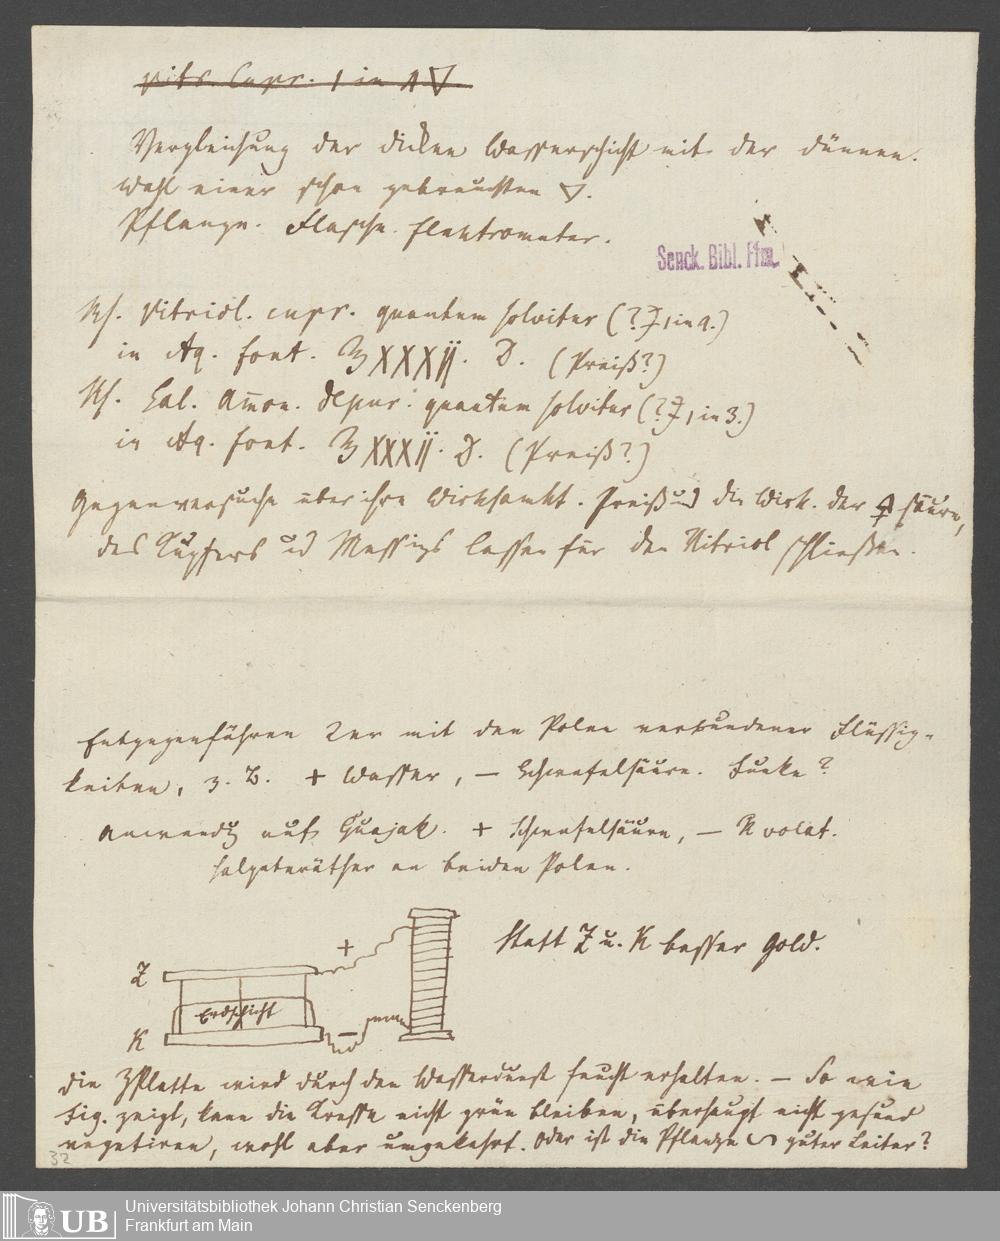 vitr. Cupr. 1 in 4 ▽.
Vergleichung der dicken Wasserschicht mit der dünnen.
Wahl einer schon gebrauchten ▽.
Pflanzen. Flasche. Elektrometer.
Senck. Bibl. Ffm.
Rf. Vitriol. cupr. quantum solvitur (? 1 in 4.)
in Aq. font. ℥ XXXII. D. (Preiß?)
Rf. Sal. Amon. depur. quantum solvitur (? 1 in 3.)
in Aq. font. ℥ XXXII. D. (Preiß?)
Gegenversuche über ihre Wirksamkt. Preiß und die Wirk. der säure,
des Kupfers ud Messings lassen für den Vitriol schließen.
Entgegenführen 2er mit den Polen verbundener Flüssig-
keiten, z. B. + Wasser, – Schwefelsäure. Funke?
Anwendg auf Guajak. + Schwefelsäure, – volat.
Salpeteräther an beiden Polen.
Statt Z u. K besser Gold.
+
Z
Erdschicht
K
–
Die ZPlatte wird durch den Wasserdunst feucht erhalten. – So wie
Fig. zeigt, kann die Kresse nicht grün bleiben, überhaupt nicht gesund
vegetiren, wohl aber umgekehrt. Oder ist die Pflanze guter Leiter?
32
UB
Universitätsbibliothek Johann Christian Senckenberg
Frankfurt am Main